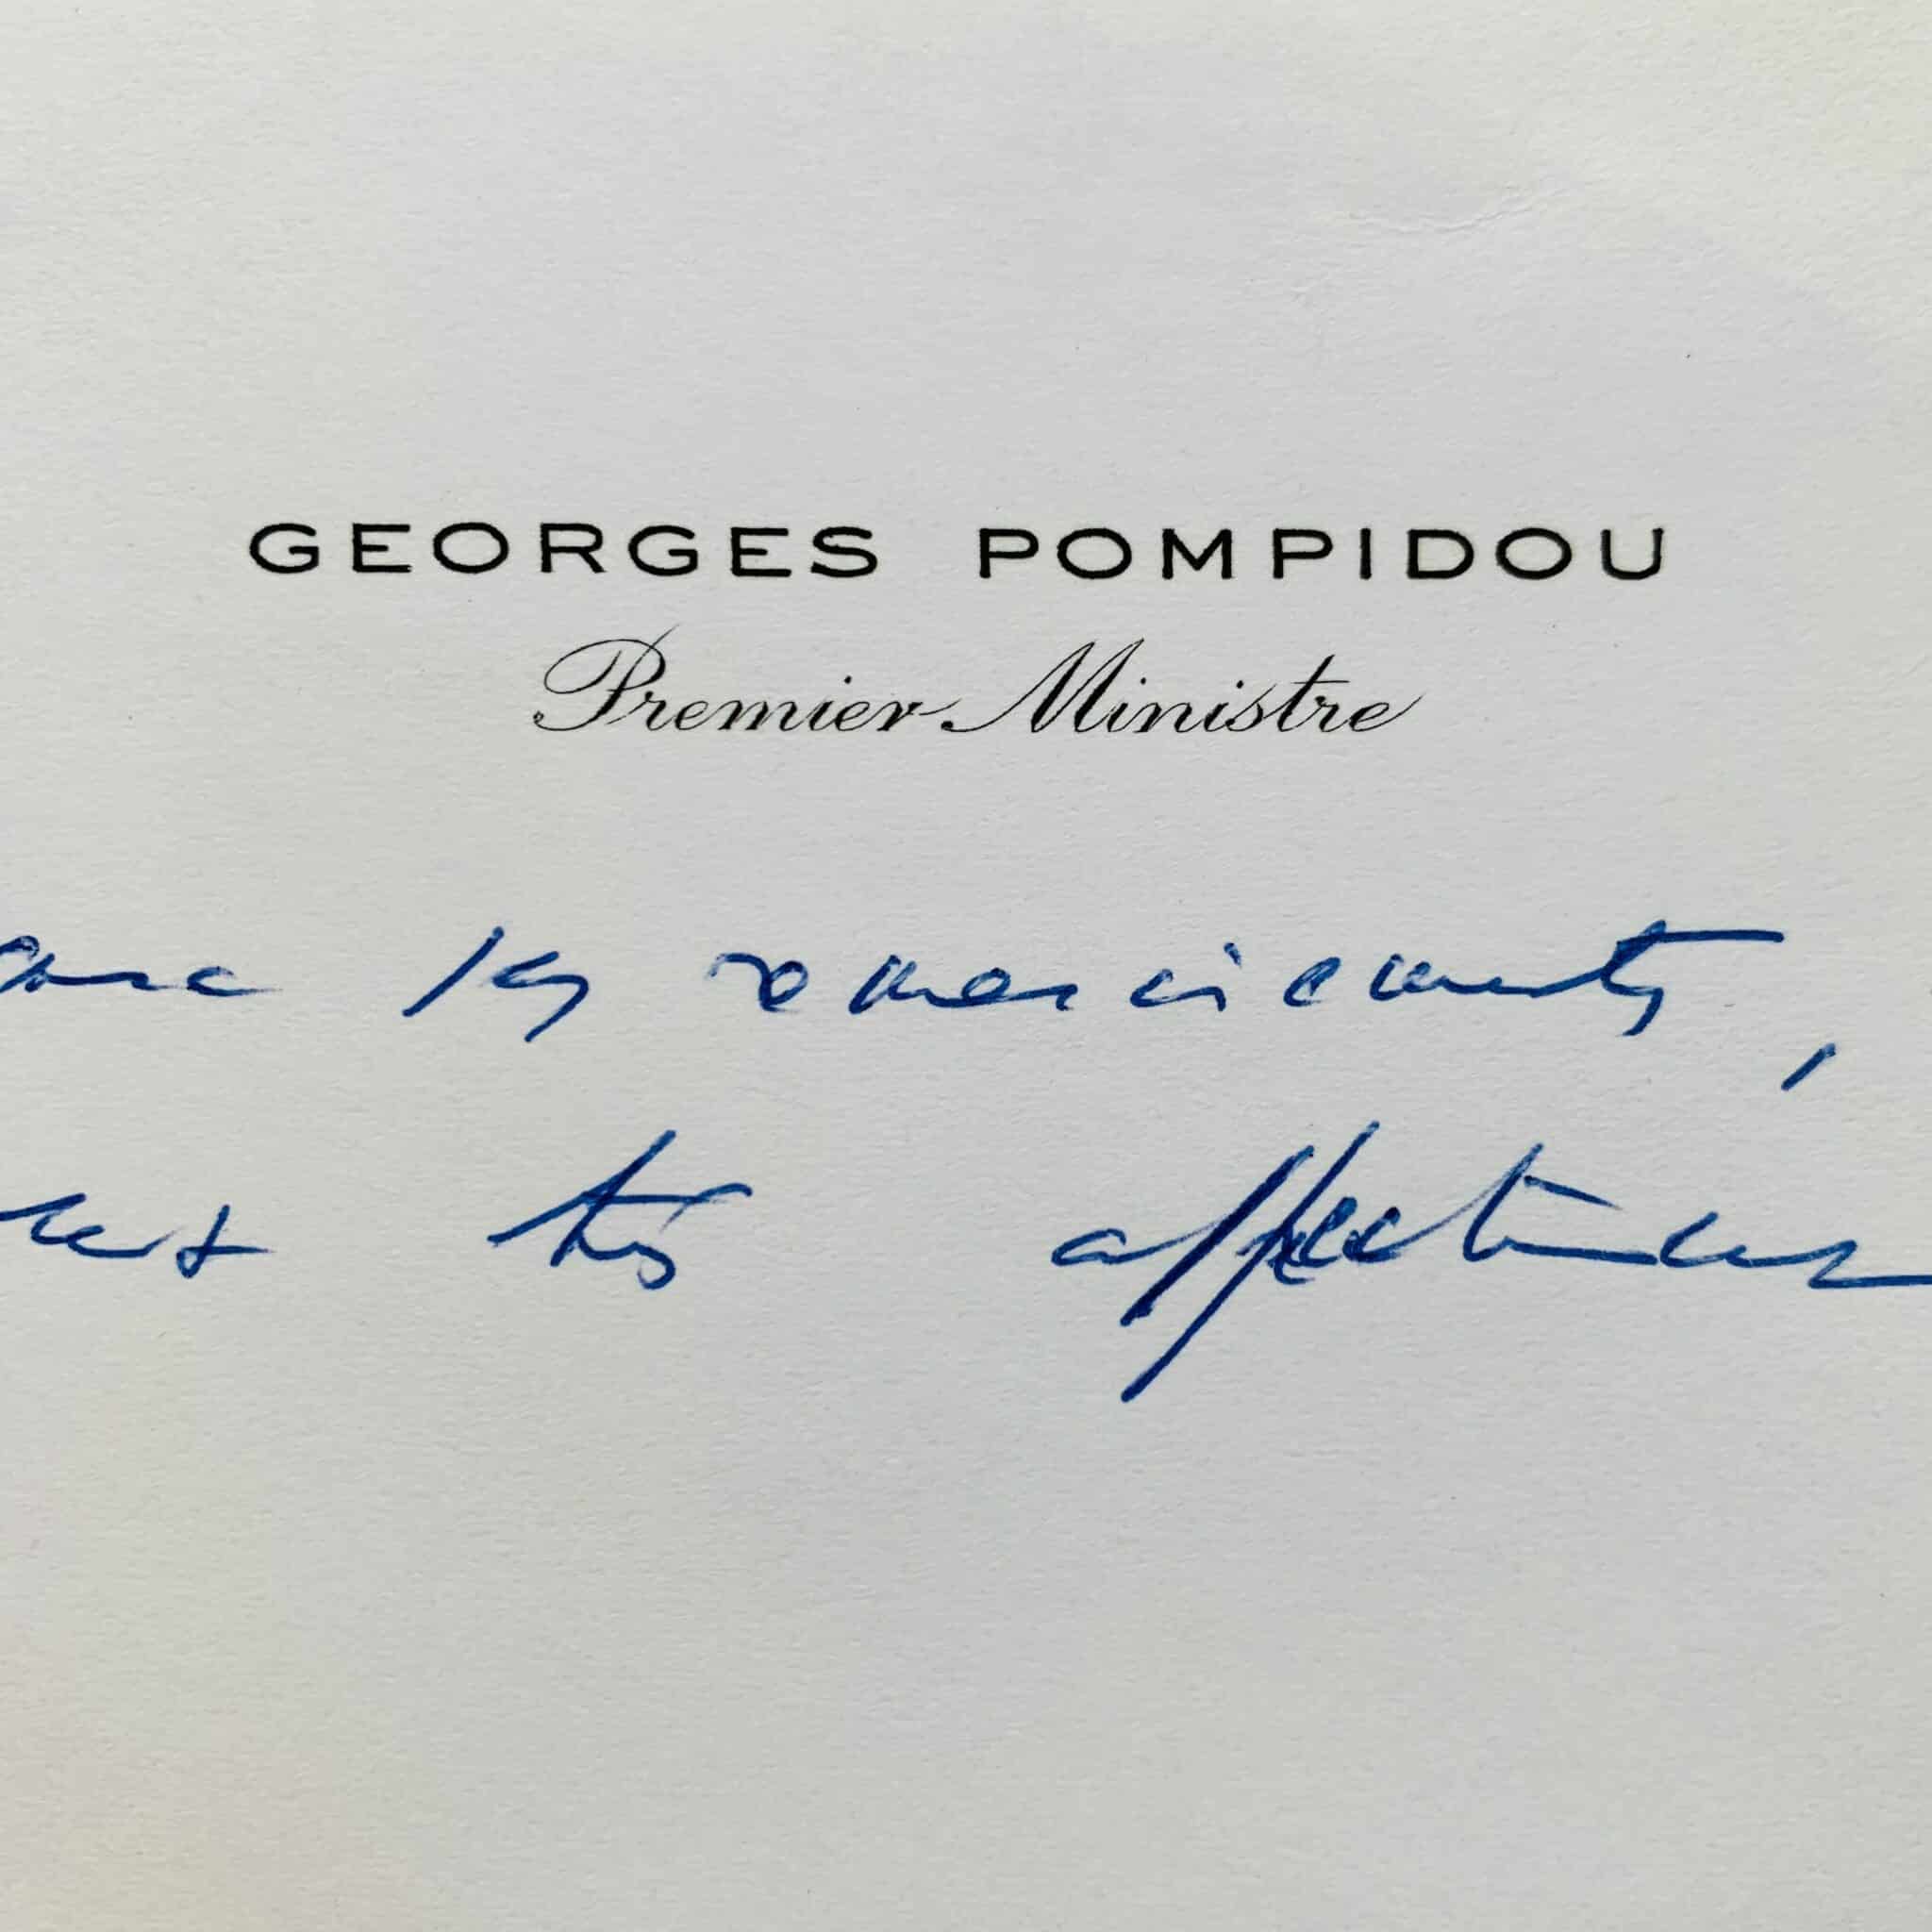 GEORGES POMPIDOU
Premier Ministre
avec ses remerciements,
très affectueux